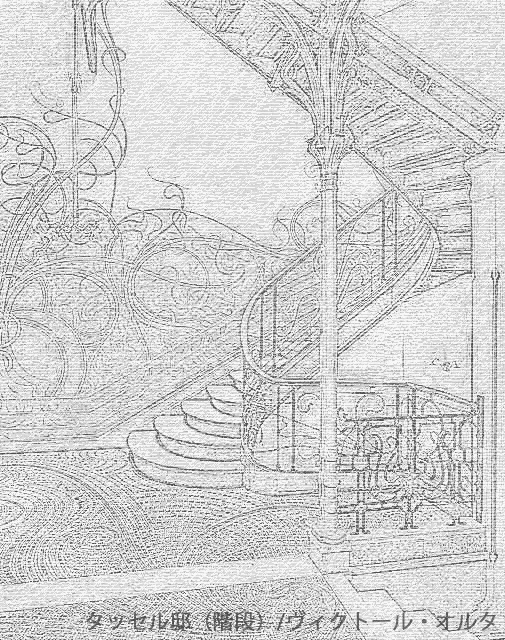 タッセル邸（階段）/ヴィクトール・オルタ